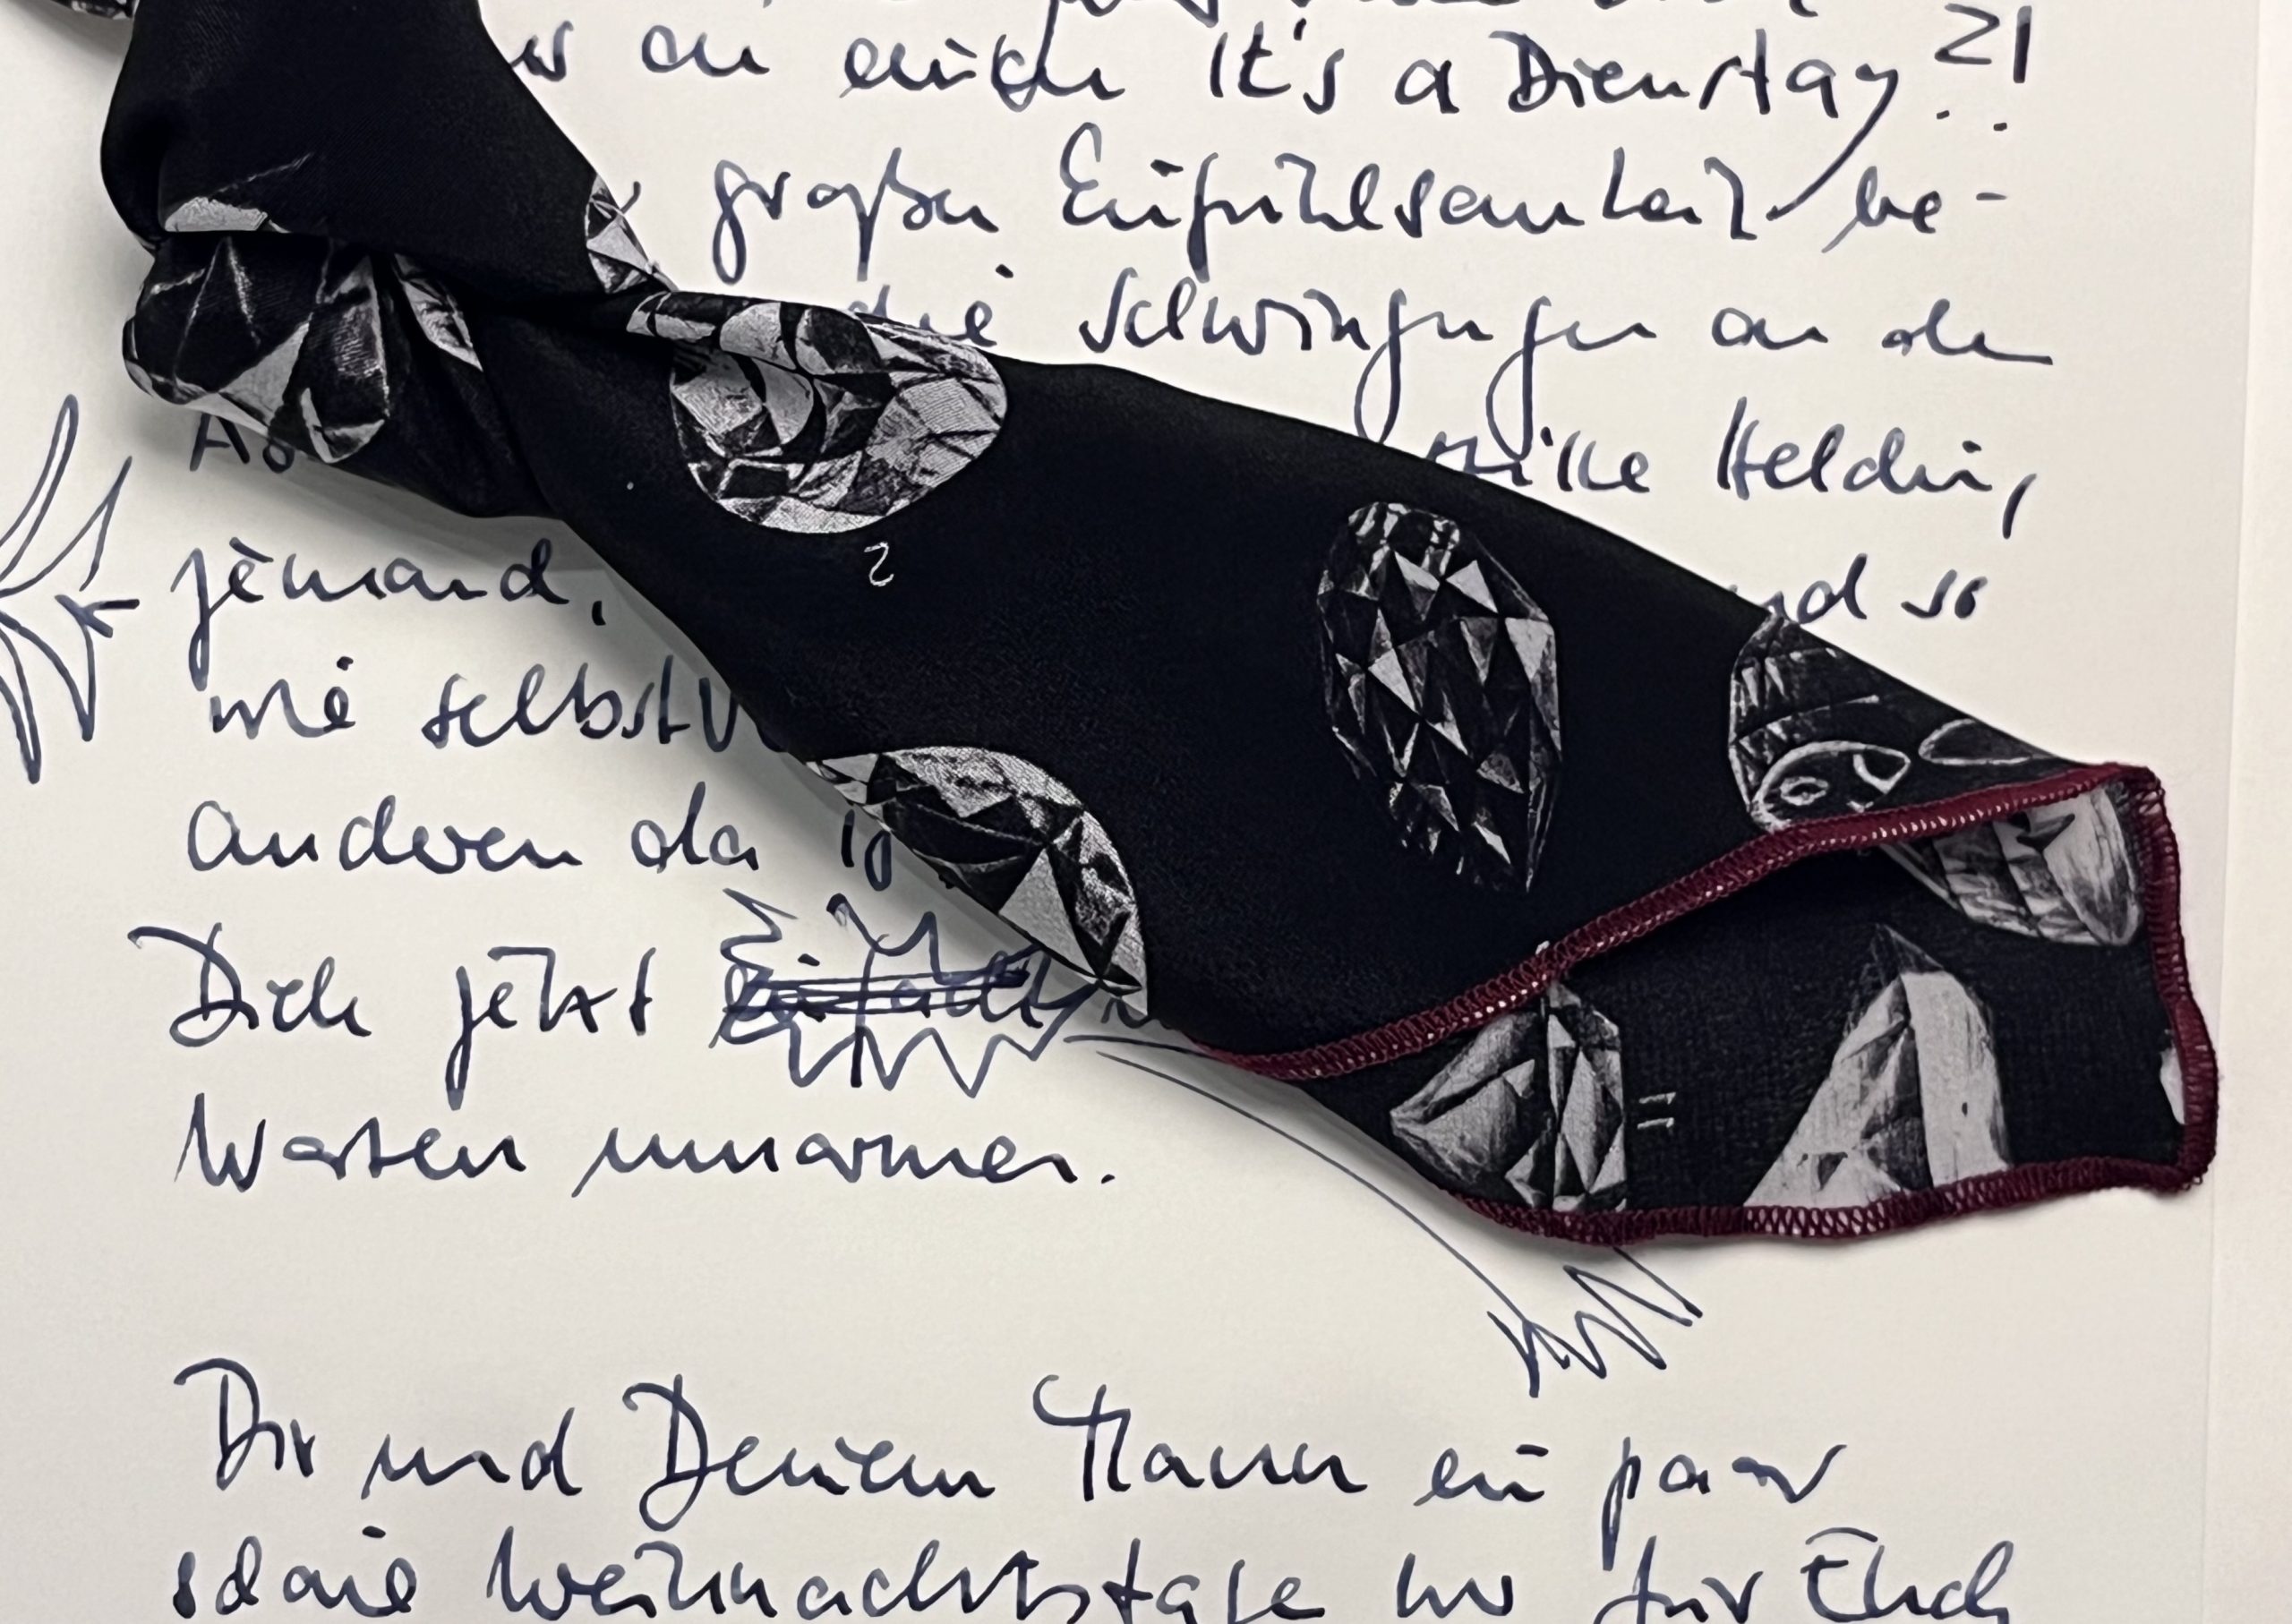 an euch It's a Dienstag?!
großen Einfühlsamkeit be-
die Schwingungen an den
stille Heldin,
jemand,
nd so
wie selbstv
anderen da is
Dich jetzt
Worten umarmen.
Dir und Deinem Mann ein paar
schöne Weihnachtstage nur für Euch
2
11